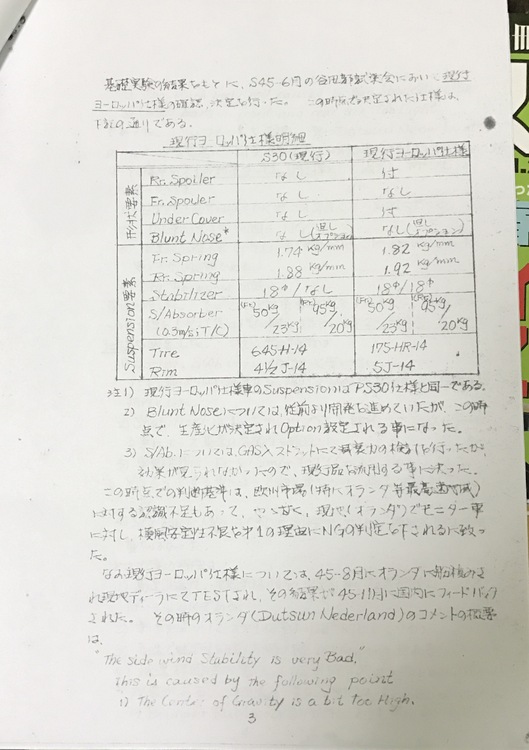 基礎実験の結果をもとに、S45-6月の谷田部試乗会において現行
ヨーロッパ仕様の確認、決定を行った。この時点で決定された仕様は、
下記の通りである.
現行ヨーロッパ仕様明細
S30(現行) 現行ヨーロッパ仕様
形状要素
Rr. Spoiler なし 付
Fr. Spoiler なし なし
Under Cover なし 付
Blunt Nose* なし(但しオプション) なし(但しオプション)
Suspension要素
Fr. Spring 1.74 kg/mm 1.82 kg/mm
Rr. Spring 1.88 kg/mm 1.92 kg/mm
Stabilizer 18φ/なし 18φ/18φ
S/Absorber (Fr) 50kg/23kg (Rr) 45kg/20kg (Fr) 50kg/23kg (Rr) 45kg/20kg
(0.3m/s T/C)
Tire 645-H-14 175-HR-14
Rim 4½J-14 5J-14
注1) 現行ヨーロッパ仕様車のSuspensionはPS30仕様と同一である.
2) Blunt Noseについては、従前より開発を進めていたが、この時
点で、生産化が決定されOption設定される事になった.
3) S/Ab.については、GAS入ストラットにて減衰力の検討を行ったが
効果が見られなかったので、現行品を流用する事に決った.
この時点での判断基準は、欧州市場(特にオランダ等最高速
に対する認識不足もあって、現地(オランダ)でモニター車
に対し、横風安定性不良を第1の理由にNGの判定を下されるに致っ
た。
なお現行ヨーロッパ仕様については、45-8月にオランダに船積みさ
れ現地ディーラにてTESTされ、その結果が45-11月に国内にフィードバック
された。その時のオランダ(Dutsun Nederland)のコメントの概要
は、
"The side wind Stability is very Bad."
This is caused by the following point
1) The Center of Gravity is a bit Too High.
3